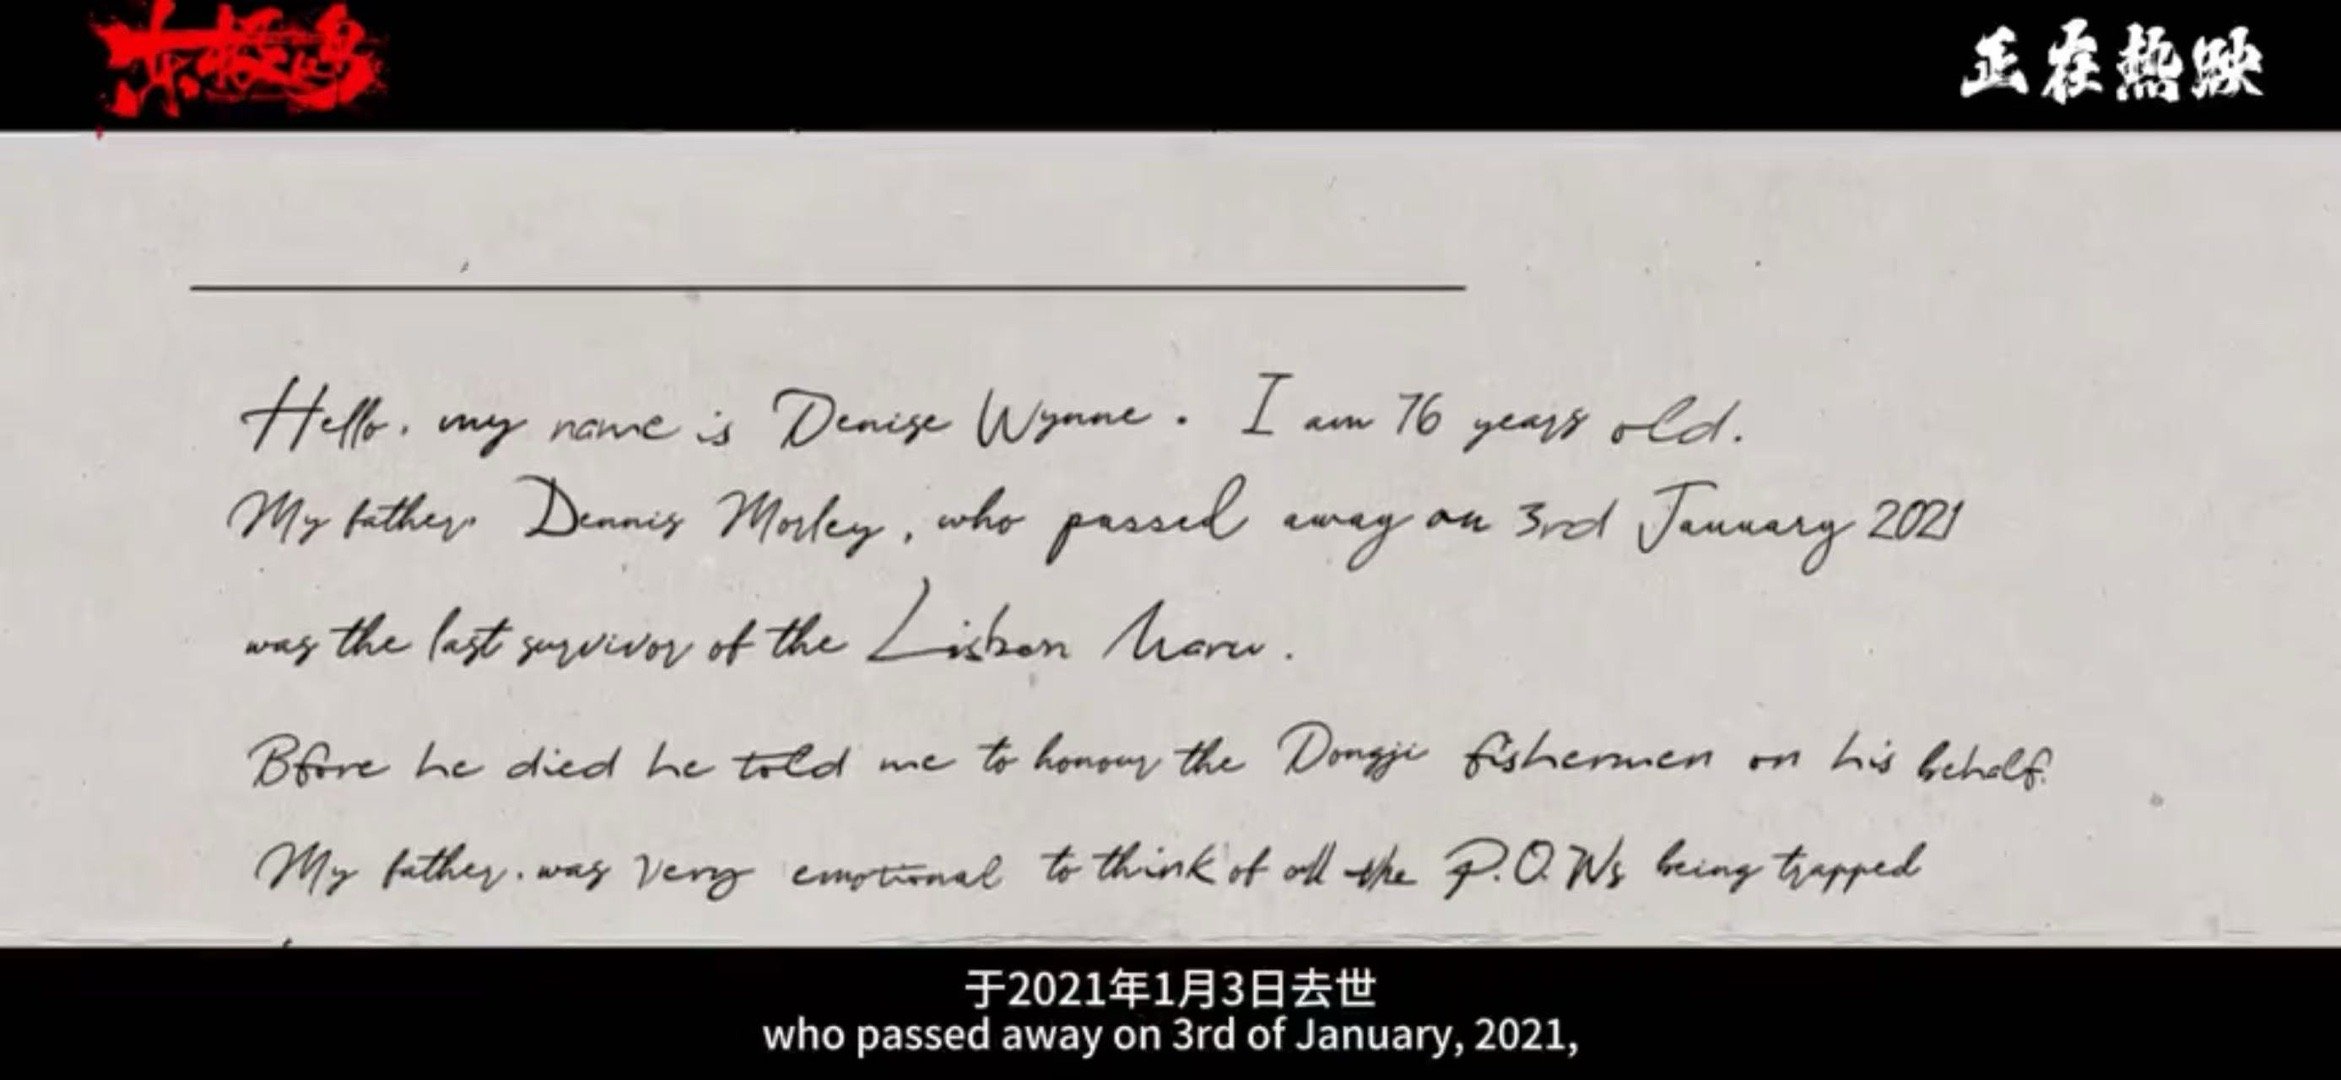 东极岛
正在热映
Hello. my name is Denise Wynne. I am 76 years old.
My father. Dennis Morley, who passed away on 3rd January 2021
was the last survivor of the Lisbon Maru.
Bfore he died he told me to honour the Dongji fishermen on his behalf.
My father. was very emotional to think of all the P.O.Ws being trapped
于2021年1月3日去世
who passed away on 3rd of January, 2021,